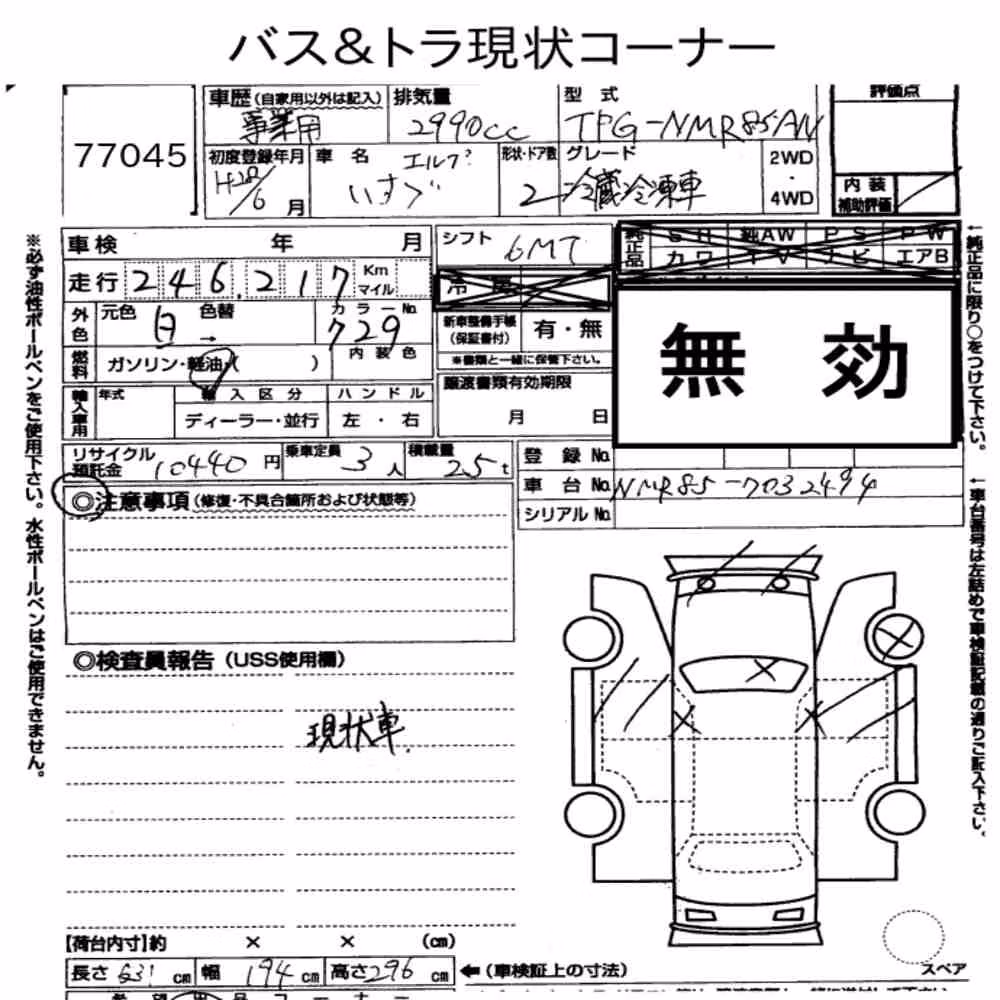 バス&トラ現状コーナー
77045
車歴(自家用以外は記入) 排気量 型式 評価点
事業用 2990cc TPG-NMR85AN
初度登録年月 車名 エルフ 形状・ドア数 グレード 2WD・4WD
H28/6月 いすゞ 2 冷蔵冷凍車
内装補助評価
車検 年 月 シフト 6MT
走行 246,217 Km マイル
純正品 SH 純AW PS PW
カワ TV ナビ エアB
外色 元色 白 色替 → カラーNo. 729
内装色
新車整備手帳(保証書付) 有・無
※書類と一緒に保管下さい。
燃料 ガソリン・軽油・( )
無 効
譲渡書類有効期限
月 日
輸入車用 年式 輸入区分 ハンドル
ディーラー・並行 左・右
リサイクル預託金 10440円 乗車定員 3人 積載量 2.5t
登録No.
車台No. NMR85-7032494
シリアルNo.
◎注意事項(修復・不具合箇所および状態等)
◎検査員報告(USS使用欄)
現状車
【荷台内寸】約 × × (cm)
長さ 631cm 幅 194cm 高さ 296cm ←(車検証上の寸法)
スペア
※必ず油性ボールペンをご使用下さい。水性ボールペンはご使用できません。
←純正品に限り○をつけて下さい。
←車台番号は左詰めで車検証記載の通りご記入下さい。